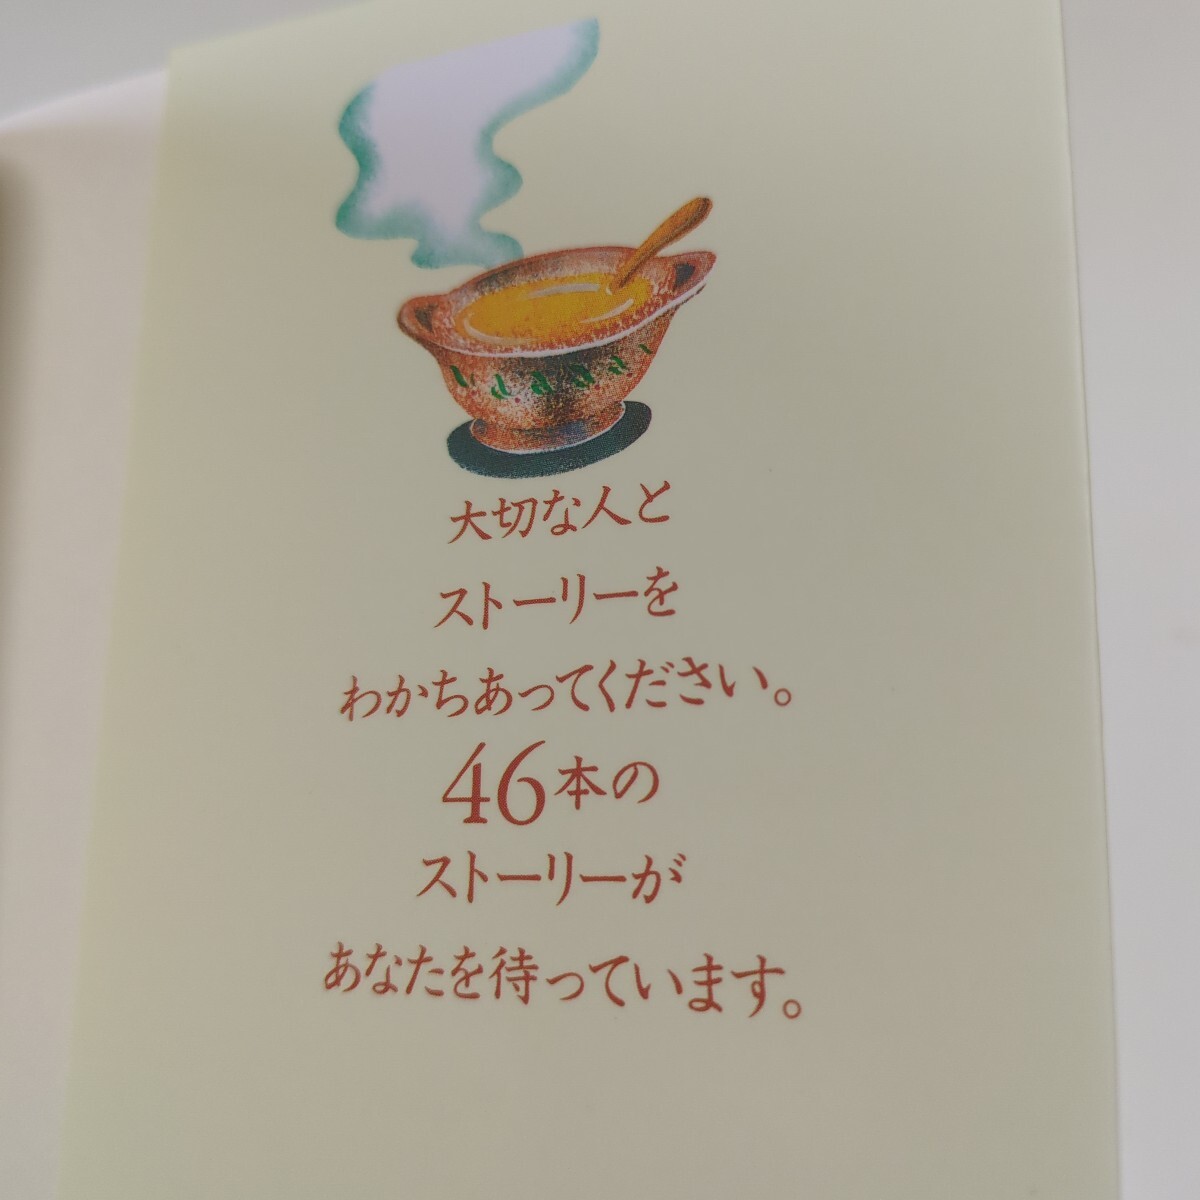 大切な人と
ストーリーを
わかちあってください。
46本の
ストーリーが
あなたを待っています。